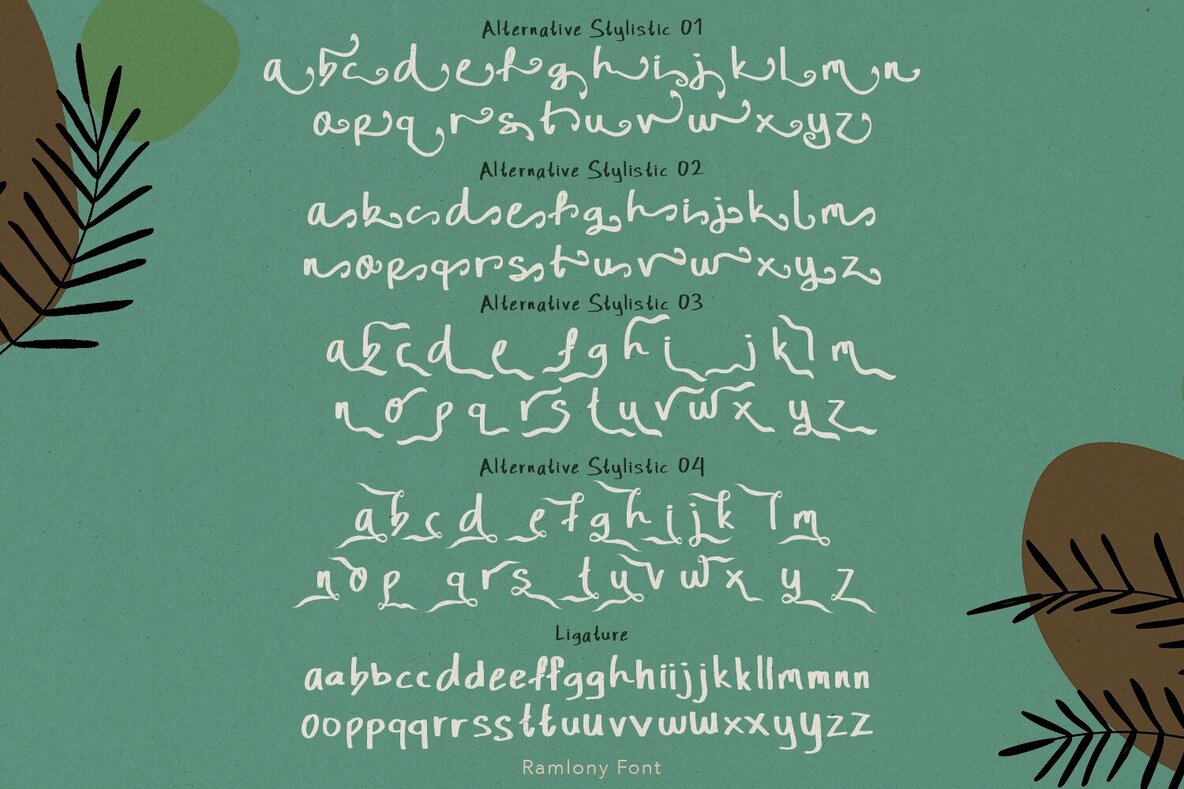 Alternative Stylistic 01
abcdefghijklmn
opqrstuvwxyz
Alternative Stylistic 02
abcdefghijklm
nopqrstuvwxyz
Alternative Stylistic 03
abcdefghijklm
nopqrstuvwxyz
Alternative Stylistic 04
abcdefghijklm
nopqrstuvwxyz
Ligature
aabbccddeeffgghhiijjkkllmmnn
ooppqqrrssttuuvvwwxxyyzz
Ramlony Font